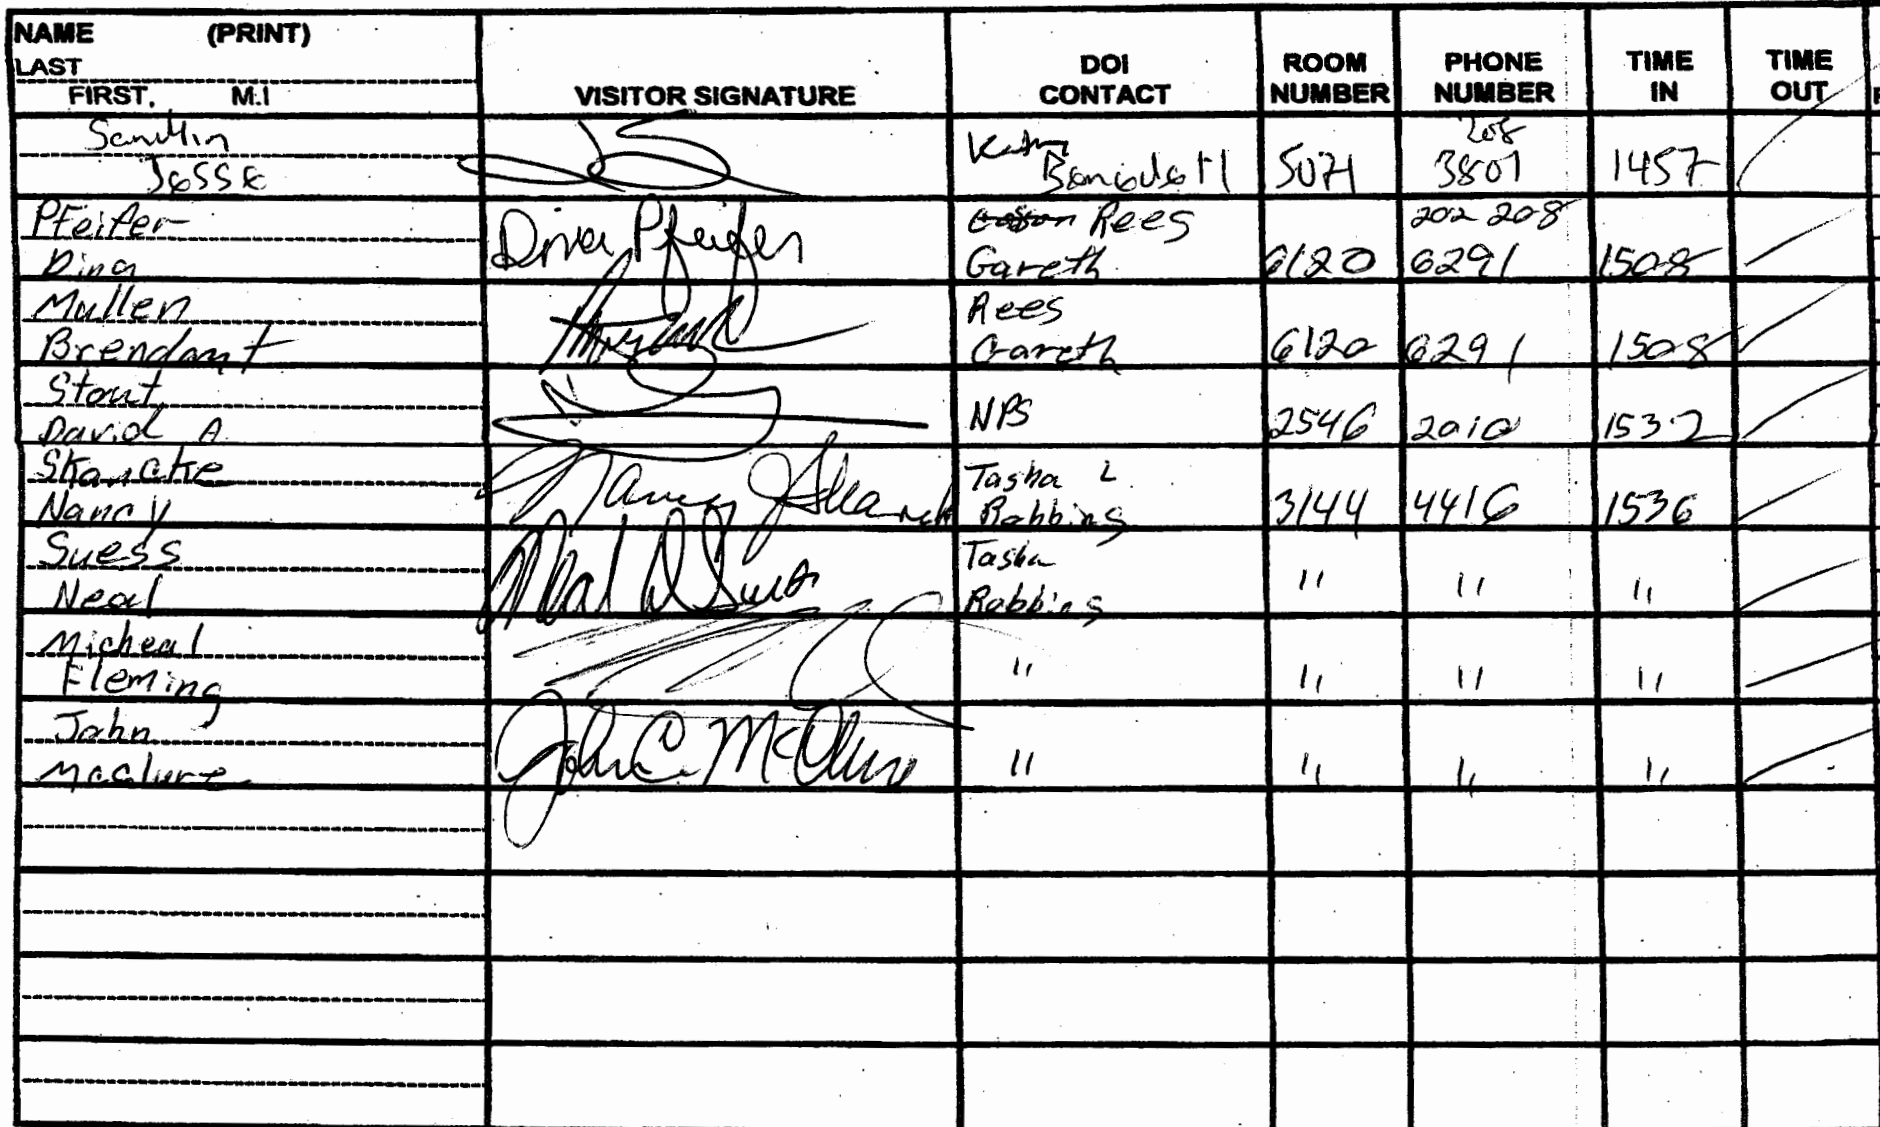 NAME (PRINT)
LAST
FIRST, M.I
VISITOR SIGNATURE
DOI CONTACT
ROOM NUMBER
PHONE NUMBER
TIME IN
TIME OUT
Sandlin
Jesse
5071
208
3801
1457
Pfeifer
Dina
Dina Pfeifer
Rees
Gareth
6120
202 208
6291
1508
Mullen
Rees
Gareth
6120
6291
1508
Stout
David A
NPS
2546
2010
1532
Skancke
Nancy
Nancy J Skancke
Tasha L
Robbins
3144
4416
1536
Suess
Neal
Neal D Suess
Tasha
Robbins
" " "
Micheal
Fleming
" " " "
John
McClure
John C. McClure
" " " "